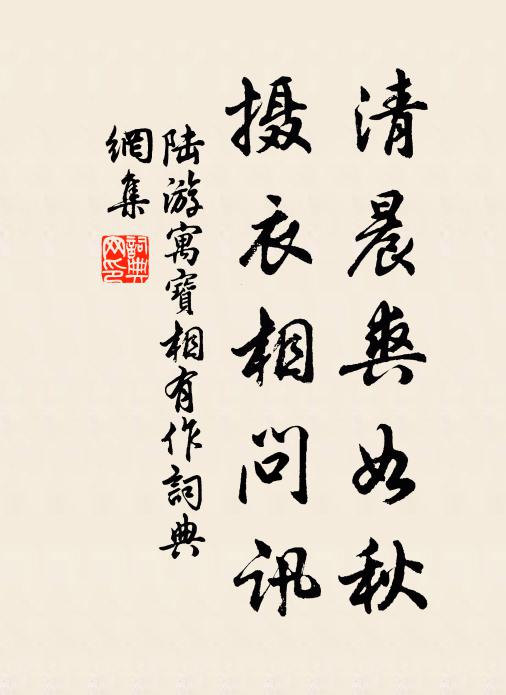 清晨爽如秋
摄衣相问讯
陆游寓寶相有作詞典
網集
詞典
网印